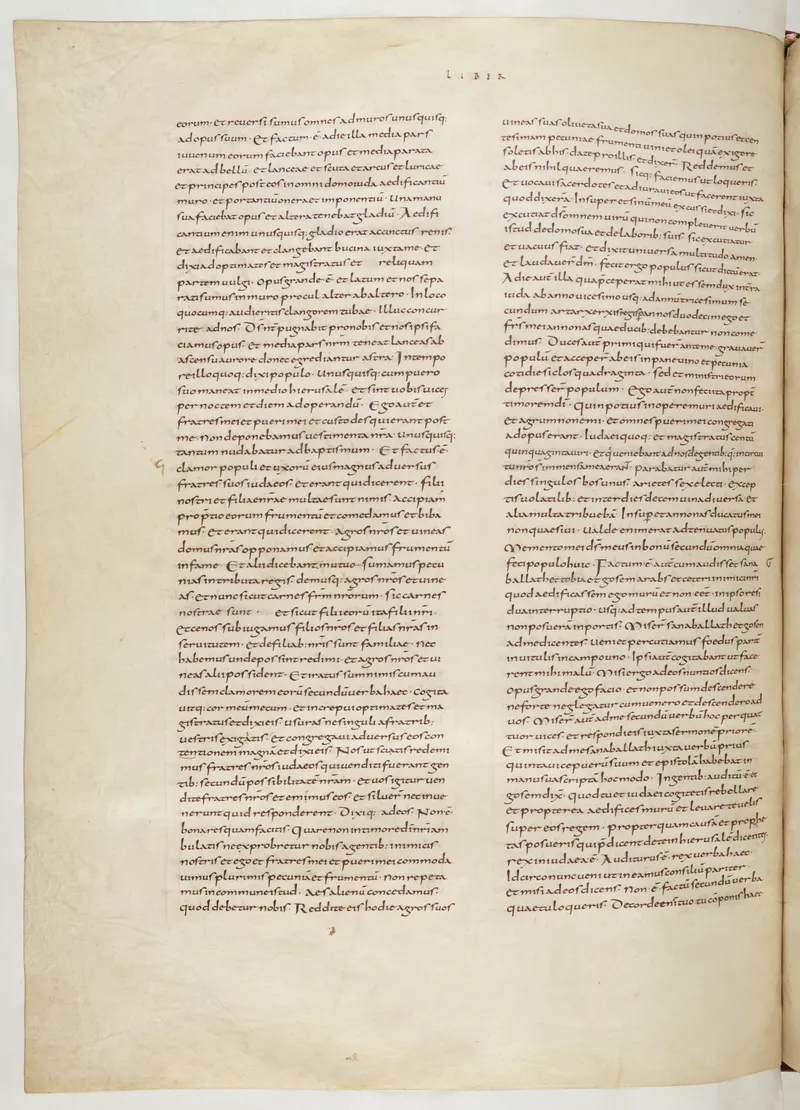 LIBER
eorum· et reuersi sumus omnes ad muros unusquisq;
ad opus suum· Et factum ē· a die illa media pars
iuuenum eorum faciebant opus et media parata
erat ad bellū· et lanceae et scuta et arcus et luricae
et principes post eos in omni domo iuda aedificantiū
muro· et portantiū onera et imponentiū· una manu
sua faciebat opus et altera tenebat gladiū· Aedifi
cantium enim unusquisq; gladio erat accinctus renes·
et aedificabant et clangebant bucina iuxta me· Et
dixi ad optimates et magistratus et reliquam
partem uulgi· opus grande ē· et latum et nos sepa
rati sumus in muro procul alter ab altero· In loco
quocumq; audieritis clangorem tubae· Illuc concur
rite ad nos· Ds nr pugnabit pro nobis et nos ipsi fa
ciamus opus· et media pars nrm teneat lanceas ab
ascensu aurore donec egrediantur astra· In tempo
re illo quoq; dixi populo· Unusquisq; cum puero
suo maneat in medio hierusalē· et sint uobis uices
per noctem et diem ad operandū· Ego aut et
fratres mei et pueri mei et custodes qui erant post
me· Non deponebamus uestimenta nra· unusquisq;
tantum nudabatur ad baptismum· Et factus ē·
clamor populi et uxorū eius magnus aduersus
fratres suos iudaeos et erant qui dicerent· filii
nostri et filiae nrae multae sunt nimis· Accipiam
pro ptio eorum frumentū et comedamus et biba
mus· et erant qui dicerent· agros nros et uineas
domus nras opponamus et accipiamus frumentū
in fame· Et alii dicebant· mutuo sumamus pecu
nias in tributa regis· demusq; agros nros et uine
as· et nunc sicut carnes frm nrorum· sic carnes
nostrae sunt· et sicut filii eorū ita filii nri·
Ecce nos subiugamus filios nros et filias nras in
seruitutem· et de filiab; nris sunt familiae· nec
habemus unde possint redimi· et agros nros et ui
neas alii possident· Et iratus sum nimis cum au
dissem clamorem eorū secundū uerba haec· Cogita
uitq; cor meum mecum· et increpui optimates et ma
gistratus et dixi eis· usuras ne singuli a fratrib;
uestris exigatis· et congregaui aduersus eos con
tentionem magnā et dixi eis· Nos ut scitis redemi
mus fratres nros iudaeos qui uenditi fuerant gen
tib; secundū possibilitatē nram· et uos igitur uen
dite fratres nros et emimus eos· et siluer nec inue
nerunt quid responderent· Dixiq; ad eos· Non ē·
bona res quam facitis· Quare non in timore di nri am
bulatis ne exprobretur nobis a gentib; inimicis
nostris et ego et fratres mei et pueri mei commoda
uimus plurimis pecuniā et frumentū· Non repeta
mus in commune istud· Aes alienū concedamus·
quod debetur nobis· Reddite eis hodie agros suos
uineas suas oliueta sua et domos suas quin potius et cen
tesimam pecuniae frumenti uini et olei quā exigere
soletis ab his· date pro illis· et dixer· Reddemus et
ab eis nihil quaeremus· sicq; faciemus ut loqueris·
Et uocaui sacerdotes et adiuraui eos ut facerent iuxta
quod dixerā· Insuper et sinū meū excussi et dixi· sic
excutiat ds omnem uirū qui non compleuerit uerbū
istud de domo sua et de laborib; suis· sic excutiatur
et uacuus fiat· Et dixit uniuersa multitudo amen·
Et laudauer dm· fecit ergo populus sicut dictū erat·
A die aut illa qua pceperat mihi ut essem dux in terra
iuda ab anno uicesimo usq; ad annū tricesimum se
cundum artarxerxis regis p annos duodecim ego et
frs mei annonas quae ducib; debebantur non come
dimus· Duces aut primi qui fuer ante me grauauer
populū et acceper ab eis in pane uino et pecunia
cotidie siclos quadraginta· sed et ministri eorum
depresser populum· Ego aut non feci ita propt
timorem di· Quin potius in opere muri aedificaui·
et agrum non emi· et omnes pueri mei congregati
ad opus erant· Iudaei quoq; et magistratus centū
quinquaginta uiri· et qui ueniebant ad nos de gentib; q; in circui
tu nro s in mensa mea erant· parabatur aut mihi per
dies singulos bos unus· arietes sex electi· excep
tis uolatilib; et inter dies decem uina diuersa et
alia multa tribuebā· Insuper et annonas ducatus mei
non quaesiui· Ualde enim erat adtenuatus populus·
Memento mei ds meus in bonū secundū omnia quae
feci populo huic· Factum ē aut cum audisset sana
ballath et tobia et gosem arabs et ceteri inimici nri
quod aedificassem ego murū et non eet in ipso resi
dua interruptio· usq; ad tempus aut illud ualuas
non posuerā in portis· Miser sanaballath et gosem
ad me dicentes· Ueni et percutiamus foedus parit
in uitulis in campo uno· Ipsi aut cogitabant ut face
rent mihi malū· Misi ergo ad eos nuntios dicens·
opus grande ego facio et non possum descendere
ne forte neglegatur cum uenero et descendero ad
uos· Miser aut ad me secundū uerbū hoc per quat
tuor uices· et respondi eis iuxta sermonē priorē·
Et misit ad me sanaballath iuxta uerbū prius
quinta uice puerū suum et epistolā habebat in
manu sua scriptā hoc modo· In gentib; auditū ē et
gosem dix· quod tu et iudaei cogitetis rebellare
et propterea aedifices murū et leuare te uelis
super eos regem· propter quam causā et prophe
tas posueris qui pdicent de te in hierusalē dicentes
rex in iudaea ē· Auditurus ē· rex uerba haec·
Idcirco nunc ueni ut ineamus consiliū pariter·
Et misi ad eos dicens· Non ē· factū secundū uerba
quae tu loqueris· De corde enī tuo tu cōponis haec